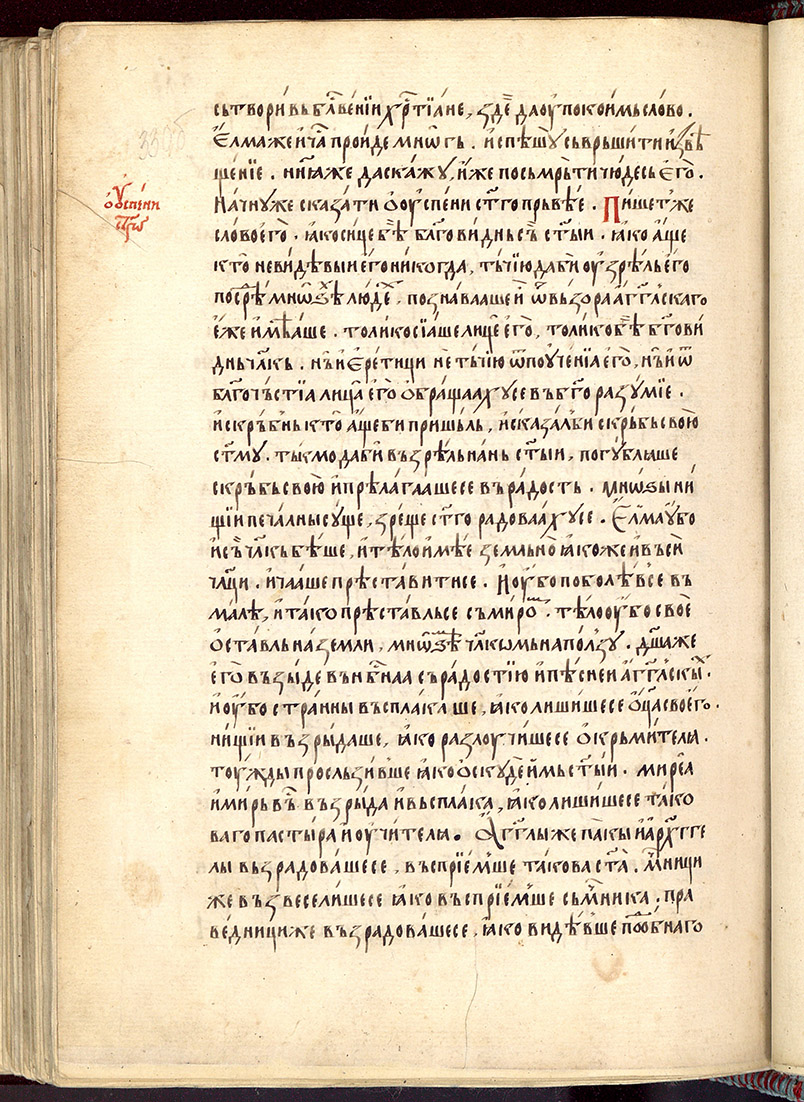 сътвори въ бл҃вен̾іи хр҃тїане, зде̑ да оупокоимь слово.
Елмаже и҆ ча̑ про́йде мнѡгъ. и҆ спѣшꙋ съврьшити и҆звѣ
щенїе. нн҃ꙗже да скажꙋ, иже по съмрьти чюдесь е҆го̀.
о оуспѣнїи ст҃го
Начнꙋже сказати ѡ оуспени ст҃го прьвѣе. Пишет же
слово е҆го̀. ꙗко сице бѣ̑ бл҃говидьнь съ̀ ст҃ыи. ꙗко а҆ще
кто̀ не видѣвыи е҆го никогда, тъчїю да бы̀ оузрѣль е҆го
посрѣ̑ мнѡѕѣ̑ люде̑. познаваашеи ѿ възора а҆гг҃лскаго
е҆же и҆мѣаше. толико сїаше лице е҆го̀, толико бѣ̑ бл҃гови
дьнь чл҃кь. нь̀ и҆ еретици не тъчїю ѿ поученїа е҆го̀, нь̀ и҆ ѿ
бл҃гочьстїа лица е҆го ѡбращаахꙋсе въ бж҃їе разꙋмїе.
и҆ скръбьнь кто̀ а҆ще би пришьль, и҆ сказаль би скръбь свою
ст҃мꙋ. тькмо да бѝ възрѣль на нь ст҃ыи, погꙋблꙗше
скръбь свою и҆ прѣлагаашесе въ радость. мнѡѕы ни
щїи печалны сꙋще, зреще ст҃го радоваахꙋсе. Елма ꙋбо
и҆ съ̀ чл҃кь бѣше, и҆ тѣло и҆мѣе земльно ꙗкоже и҆ въси
чл҃ци. и҆ чааше прѣставитисе. И оубо поболѣвсе въ
малѣ, и҆ тако прѣставльсе съ миро̑. тѣло оубо свое
ѡставль на земли, мнѡѕѣ̑ чл҃комь на ползꙋ. дш҃а же
е҆го̀ възыде въ нб҃наа съ радостїю и҆ пѣснеи а҆гг҃лскы̑.
и҆ оубо странны въсплакаше, ꙗко лишишесе ѡц҃а своего.
нищїи възрыдаше, ꙗко разлоучишесе ѡ кръмителꙗ.
тоужды прослъзивше ꙗко ѡскꙋде имь ст҃ыи. мирѣа
и҆ мирь въ̑ възрыда и въсплака, ꙗко лишишесе тако
ваго пастыра и оучителꙗ. А҆гг҃лы же пакы и҆ а҆рхг҃ге
лы възрадовашесе, въспрїемше такова ст҃а̀. мч҃ници
же възвеселишесе ꙗко въспрїемше съмч҃ника. пра
ведници же възрадовашесе, ꙗко видѣвше по̑обнаго